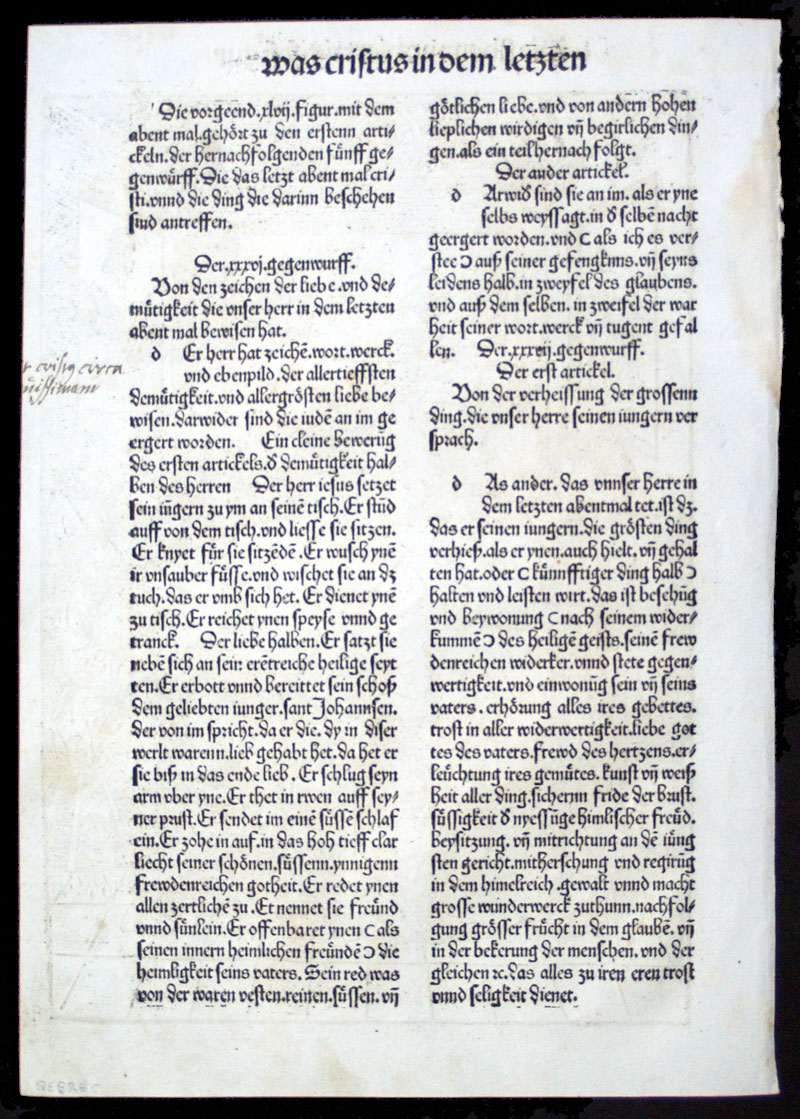 was cristus in dem letzten
Die vorgeend.xlvij.figur.mit dem
abent mal.gehört zu den erstenn arti⸗
ckeln.der hernachfolgenden fünff ge⸗
genwürff.Die das letzt abent mal cri⸗
sti.vnnd die ding die darinn beschehen
sind antreffen.
Der.xxxvj.gegenwurff.
Von den zeichen der liebe.vnd de⸗
mütigkeit die vnser herr in dem letzten
abent mal bewisen hat.
d Er herr hat zeichē.wort.werck.
vnd ebenpild.der allertieffsten
demütigkeit.vnd allergrösten liebe be⸗
wisen.darwider sind die iudē an im ge
ergert worden. Ein cleine bewerūg
des ersten artickels.ꝺ demütigkeit hal⸗
ben des herren Der herr iesus setzet
sein iūgern zu ym an seinē tisch.Er stūd
auff von dem tisch.vnd liesse sie sitzen.
Er knyet für sie sitzēdē.Er wusch ynē
ir vnsauber füsse.vnd wischet sie an dz
tuch.das er vmb sich het.Er dienet ynē
zu tisch.Er reichet ynen speyse vnnd ge
tranck. Der liebe halben.Er satzt sie
nebē sich an sein erētreiche heilige seyt
ten.Er erbott vnnd bereittet sein schoß
dem geliebten iunger.sant Johannsen.
der von im spricht.da er die.dy in diser
werlt warenn.lieb gehabt het.da het er
sie biß in das ende lieb. Er schlug seyn
arm vber yne.Er thet in rwen auff sey⸗
ner prust.Er sendet im einē süssē schlaf
ein.Er zohe in auf.in das hoh tieff clar
liecht seiner schönen.süssenn.ynnigenn
frewdenreichen gotheit.Er redet ynen
allen zertlichē zu.Et nennet sie freünd
vnnd sünlein.Er offenbaret ynen ⊂ als
seinen innern heimlichen freündē ⊃ die
heimligkeit seins vaters. Sein red was
von der waren vesten.reinen.süssen.vñ
götlichen liebe.vnd von andern hohen
lieplichen wirdigen vñ begirlichen din⸗
gen.als ein teil hernach folgt.
Der ander artickel.
d Arwiꝺ sind sie an im.als er yne
selbs weyssagt.in ꝺ selbē nacht
geergert worden.vnd ⊂ als ich es ver⸗
stee ⊃ auß seiner gefengknus.vñ seyns
leidens halb.in zweyfel des glaubens.
vnd auß dem selben.in zweifel der war
heit seiner wort.werck vñ tugent gefal
len. Der.xxxvij.gegenwurff.
Der erst artickel.
Von der verheissung der grossenn
ding.die vnser herre seinen iungern ver
sprach.
d As ander.das vnnser herre in
dem letzten abentmal tet.ist dz.
das er seinen iungern.die grösten ding
verhieß.als er ynen.auch hielt.vñ gehal
ten hat.oder ⊂ künnfftiger ding halb ⊃
halten vnd leisten wirt.das ist besehūg
vnd beywonung ⊂ nach seinem wider⸗
kummē ⊃ des heiligē geists.seinē frew
denreichen widerker.vnnd stete gegen⸗
wertigkeit.vnd einwonūg sein vñ seins
vaters.erhörung alles ires gebettes.
trost in aller widerwertigkeit.liebe got
tes des vaters.frewd des hertzens.er⸗
leüchtung ires gemütes.kunst vñ weiß
heit aller ding.sichernn fride der brust.
süssigkeit ꝺ nyessūge himlischer freüd.
beysitzung.vñ mitrichtung an dē iüng
sten gericht.mitherschung vnd regirūg
in dem himelreich.gewalt vnnd macht
grosse wunderwerck zuthunn.nachfol⸗
gung grösser frücht in dem glaubē.vñ
in der bekerung der menschen.vnd der
gleichen ꝛc.das alles zu iren eren trost
vnnd seligkeit dienet.
circa